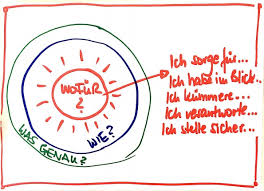 WOFÜR
?
WIE?
WAS GENAU?
Ich sorge für...
Ich hab's im Blick...
Ich kümmere...
Ich verantworte...
Ich stelle sicher...